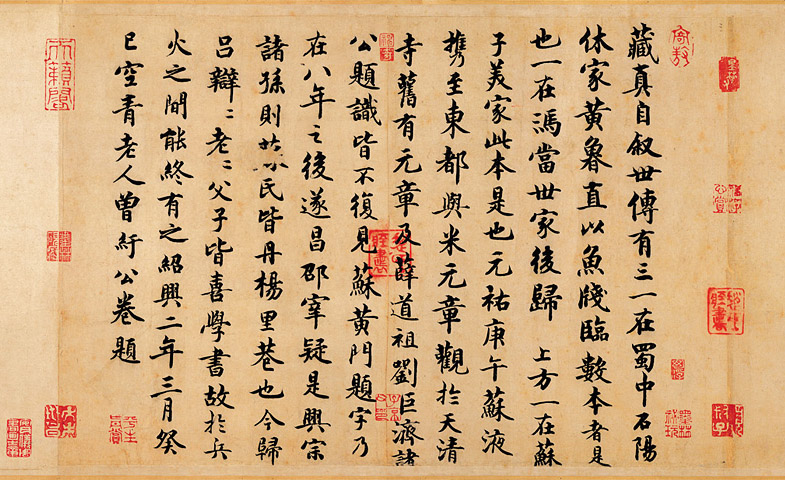 藏真自叙世傳有三一在蜀中石陽
休家黄魯直以魚牋臨數本者是
也一在馮當世家後歸 上方一在蘇
子美家此本是也元祐庚午蘇液
携至東都與米元章觀於天清
寺舊有元章及薛道祖劉巨濟諸
公題識皆不復見蘇黄門題字乃
在八年之後遂昌邵宰疑是興宗
諸孫則民皆丹楊里巷也今歸
吕辯〻老〻父子皆喜學書故於兵
火之間能終有之紹興二年三月癸
巳空青老人曾紆公卷題